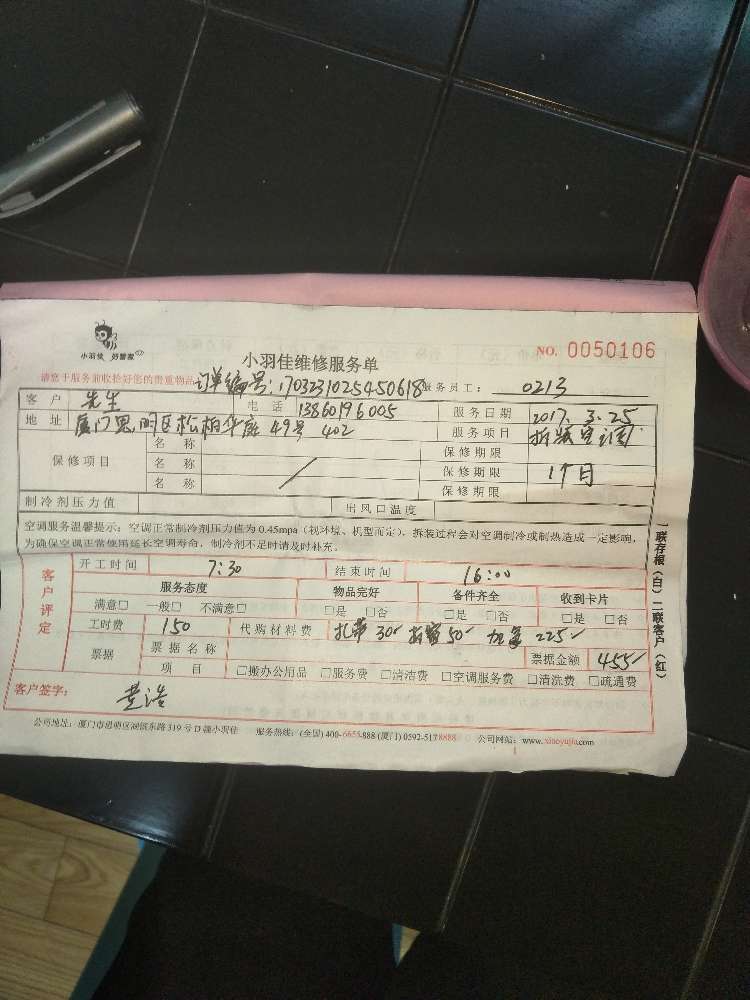 小羽佳 好管家
小羽佳维修服务单
NO. 0050106
请您于服务前收拾好您的贵重物品 订单编号:1703231025450618 服务员工: 0213
客户 先生 电话 13860196005 服务日期 2017.3.25
地址 厦门思明区松柏华庭49号402 服务项目 拆装空调
保修项目 名称 保修期限
名称 / 保修期限 1个月
名称 保修期限
制冷剂压力值 出风口温度
空调服务温馨提示:空调正常制冷剂压力值为0.45mpa(视环境、机型而定),拆装过程会对空调制冷或制热造成一定影响,
为确保空调正常使用延长空调寿命,制冷剂不足时请及时补充。
客户评定
开工时间 7:30 结束时间 16:00
服务态度 物品完好 备件齐全 收到卡片
满意□ 一般□ 不满意□ □是 □否 □是 □否 □是 □否
工时费 150 代购材料费 扎带 30 50 225
票据 票据名称 票据金额 455
项目 □搬办公用品 □服务费 □清洁费 □空调服务费 □清洗费 □疏通费
客户签字: 黄浩
公司地址:厦门市思明区湖滨东路319号D 小羽佳 服务热线:(全国)400-6655888 (厦门)0592-5178888 公司网站:www.xiaoyujia.com
一联存根(白) 二联客户(红)